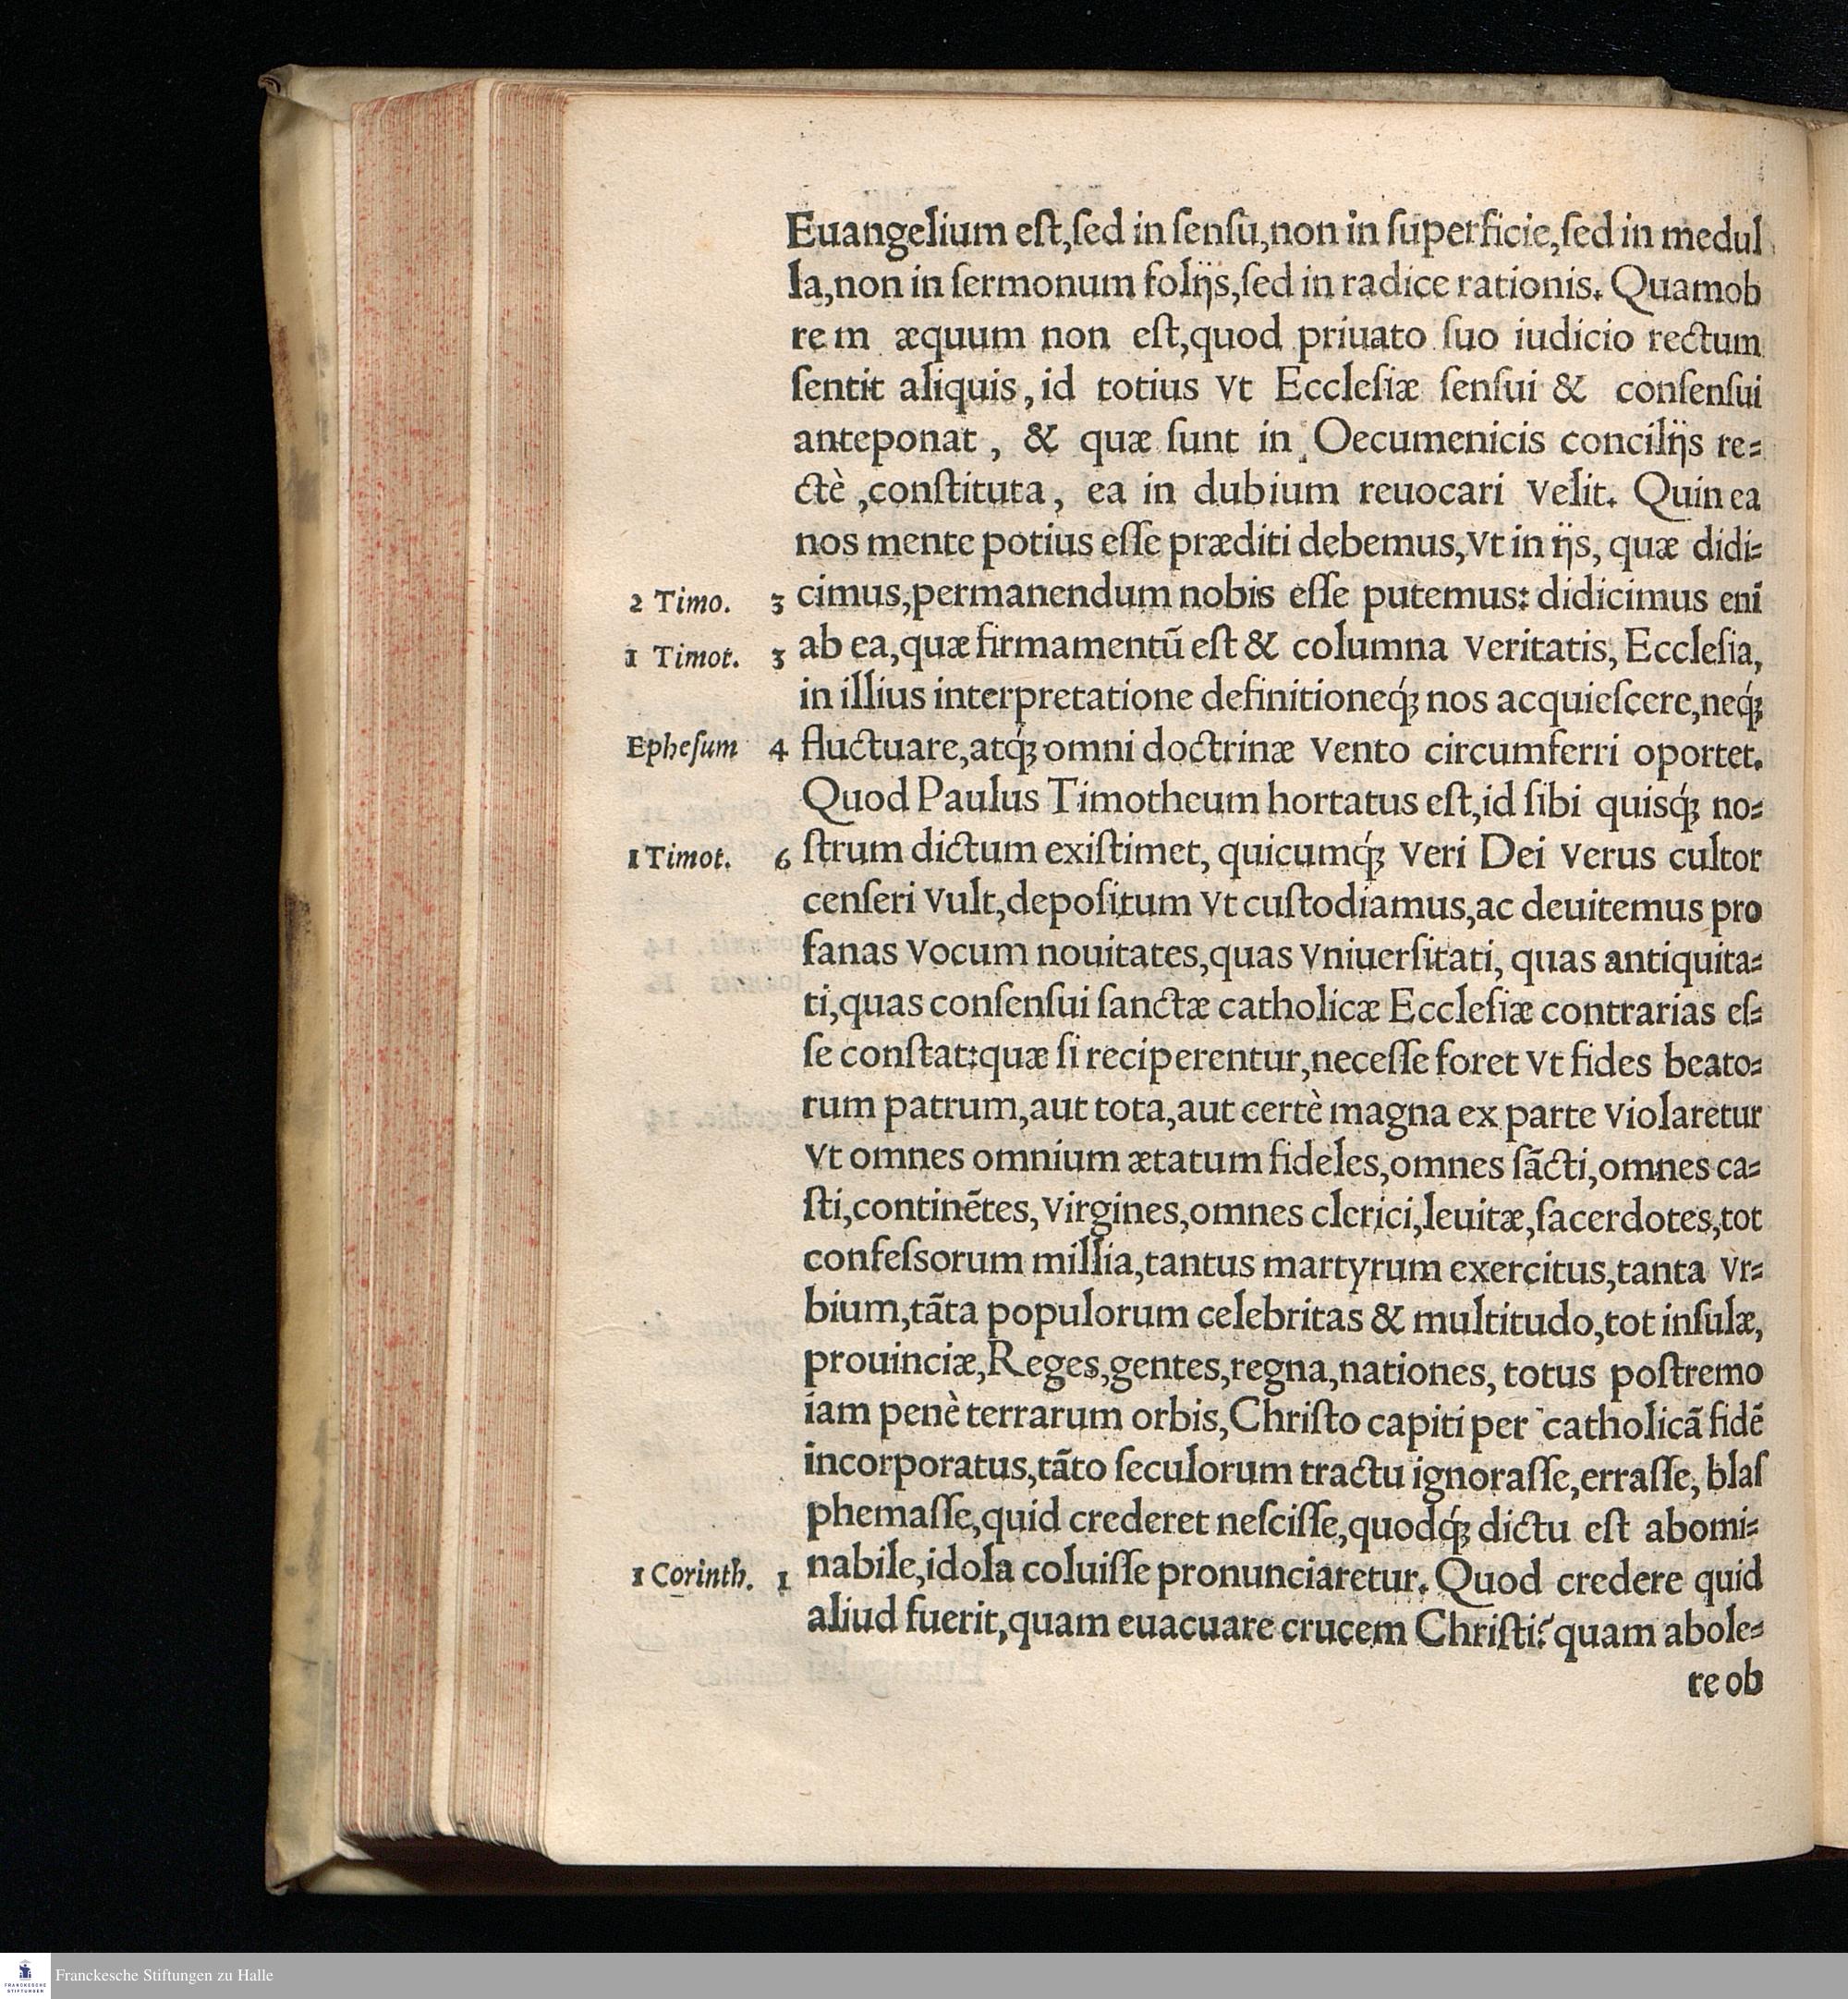 Euangelium eſt,ſed in ſenſu,non in ſuperficie,ſed in medul
la,non in ſermonum folijs,ſed in radice rationis. Quamob
rem æquum non eſt,quod priuato ſuo iudicio rectum
ſentit aliquis, id totius vt Eccleſiæ ſenſui & conſenſui
anteponat, & quæ ſunt in Oecumenicis concilijs re-
ctè,conſtituta, ea in dubium reuocari velit. Quin ea
nos mente potius eſſe præditi debemus,vt in ijs, quæ didi-
2 Timo. 3 cimus,permanendum nobis eſſe putemus: didicimus eni̅
1 Timot. 3 ab ea,quæ firmamentũ eſt & columna veritatis, Eccleſia,
in illius interpretatione definitioneq́ꝫ nos acquieſcere,neq́ꝫ
Epheſum 4 fluctuare,atq́ꝫ omni doctrinæ vento circumferri oportet.
Quod Paulus Timotheum hortatus eſt,id ſibi quiſq́ꝫ no-
1 Timot. 6 ſtrum dictum exiſtimet, quicumq́ꝫ veri Dei verus cultor
cenſeri vult,depoſitum vt cuſtodiamus,ac deuitemus pro
fanas vocum nouitates,quas vniuerſitati, quas antiquita-
ti,quas conſenſui ſanctæ catholicæ Eccleſiæ contrarias eſ-
ſe conſtat:quæ ſi reciperentur,neceſſe foret vt fides beato-
rum patrum,aut tota,aut certè magna ex parte violaretur
vt omnes omnium ætatum fideles,omnes ſãcti,omnes ca-
ſti,continẽtes,virgines,omnes clerici,leuitæ,ſacerdotes,tot
confeſsorum millia,tantus martyrum exercitus,tanta vr-
bium,tãta populorum celebritas & multitudo,tot inſulæ,
prouinciæ,Reges,gentes,regna,nationes, totus poſtremo
iam penè terrarum orbis,Chriſto capiti per catholicã fidẽ
incorporatus,tãto ſeculorum tractu ignoraſſe,erraſſe, blaſ
phemaſſe,quid crederet neſciſſe,quodq́ꝫ dictu eſt abomi-
1 Corinth. 1 nabile,idola coluiſſe pronunciaretur. Quod credere quid
aliud fuerit,quam euacuare crucem Chriſti? quam abole-
re ob
Franckesche Stiftungen zu Halle
FRANCKESCHE
STIFTUNGEN